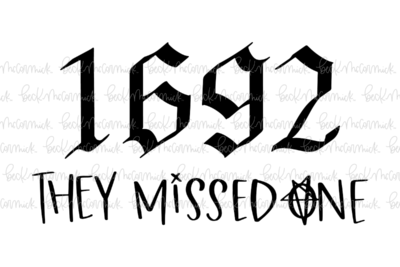 1692
THEY MiSSED ONE